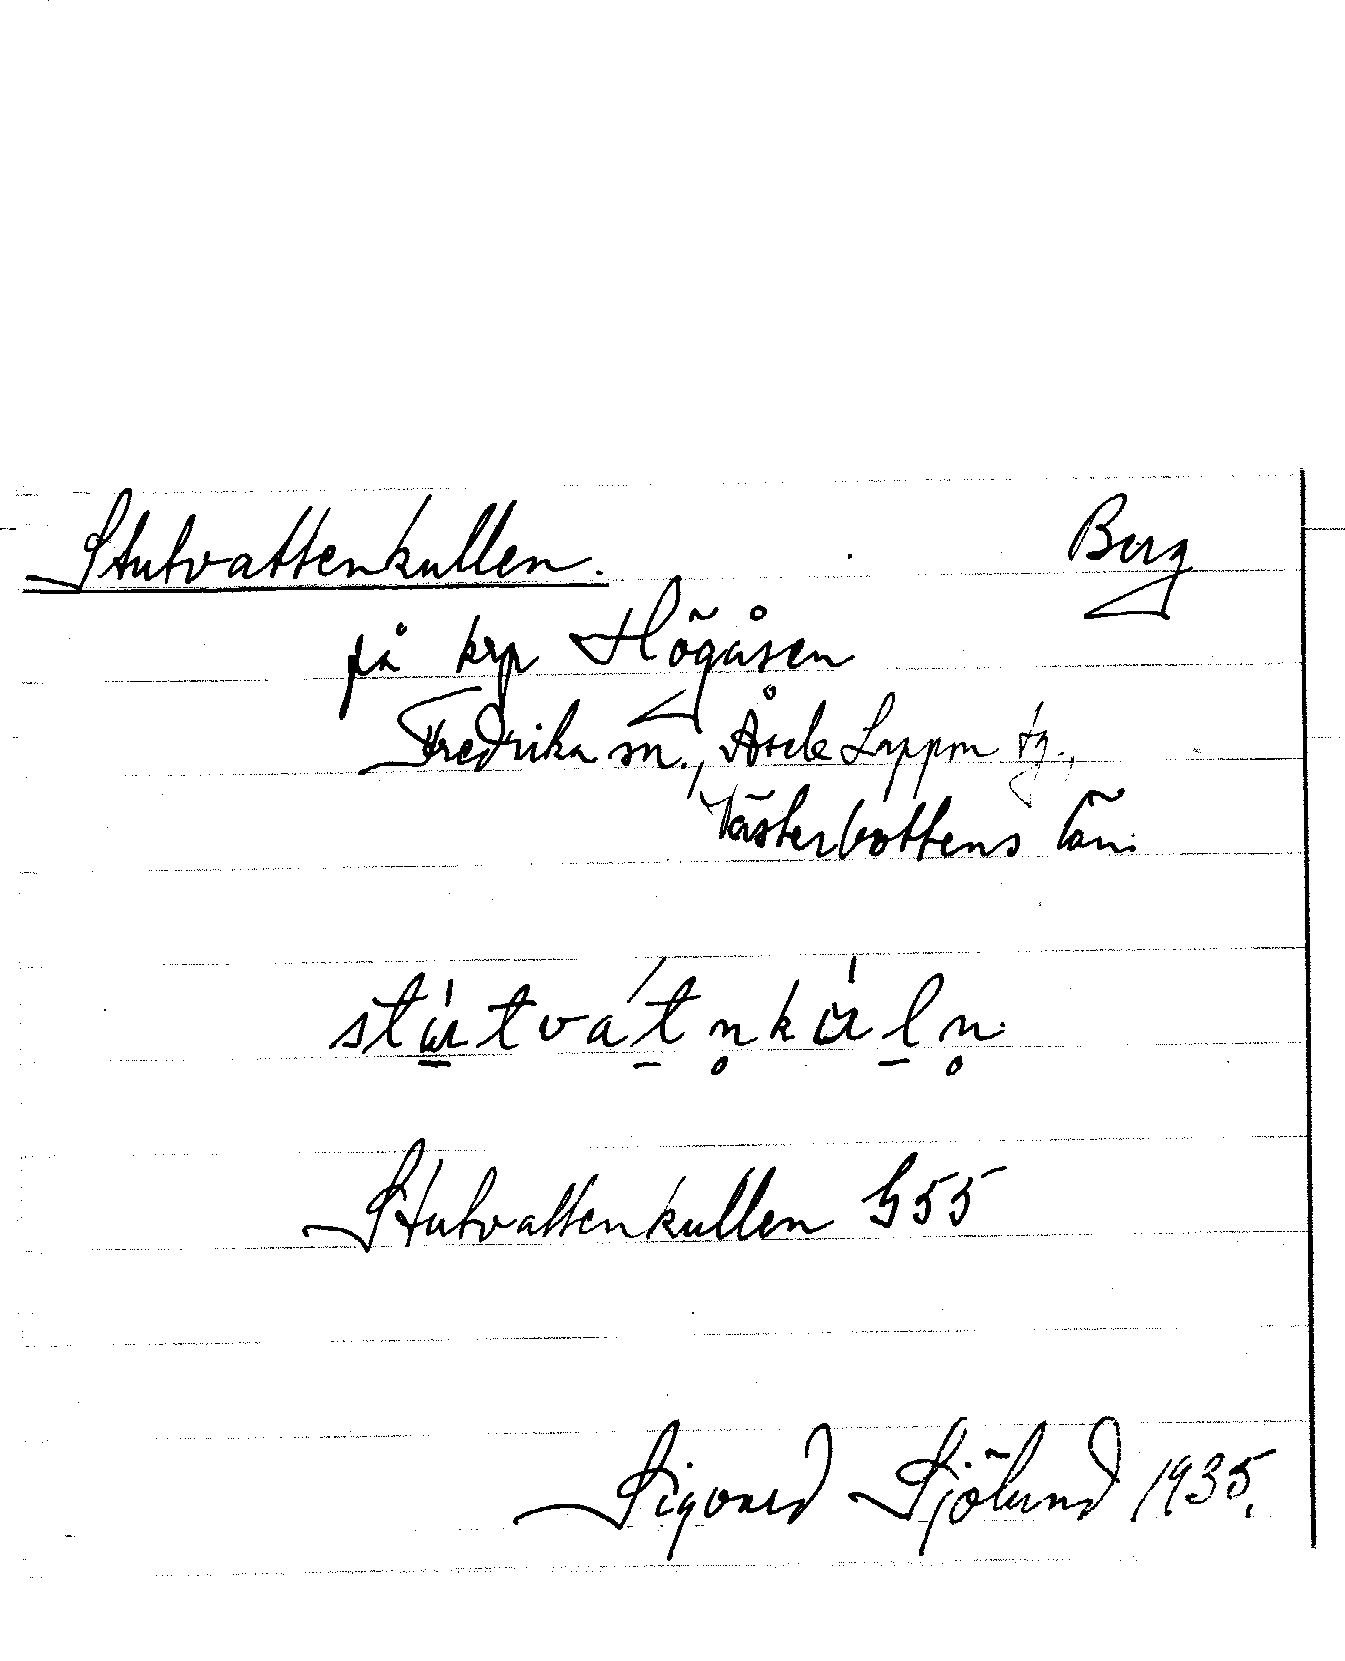 Stutvattenkullen. Berg
på krp Högåsen
Fredrika sn., Åsele Lappm tg.,
Västerbottens län.
Stutvattenkullen G55
Sigvard Sjölund 1935.